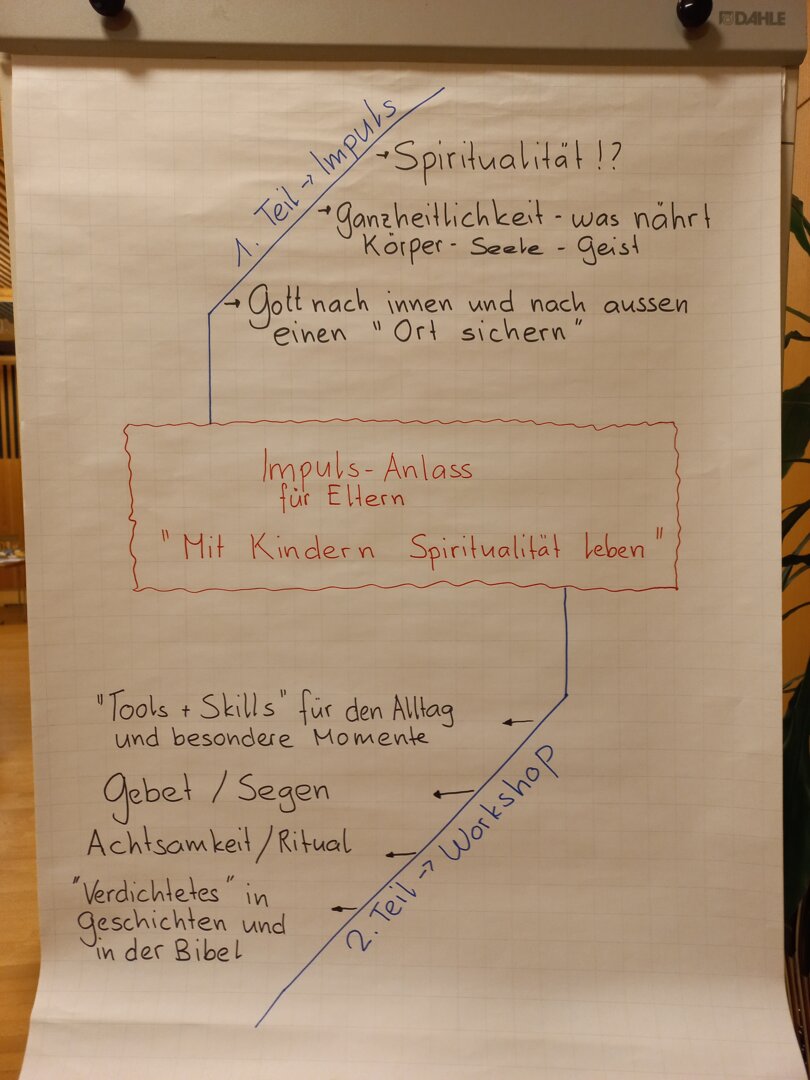 DAHLE
1. Teil → Impuls
→ Spiritualität!?
→ Ganzheitlichkeit - was nährt
Körper - Seele - Geist
→ Gott nach innen und nach aussen
einen "Ort sichern"
Impuls-Anlass
für Eltern
"Mit Kindern Spiritualität leben"
"Tools + Skills" für den Alltag
und besondere Momente
Gebet / Segen
Achtsamkeit/Ritual
"Verdichtetes" in
Geschichten und
in der Bibel
2. Teil → Workshop